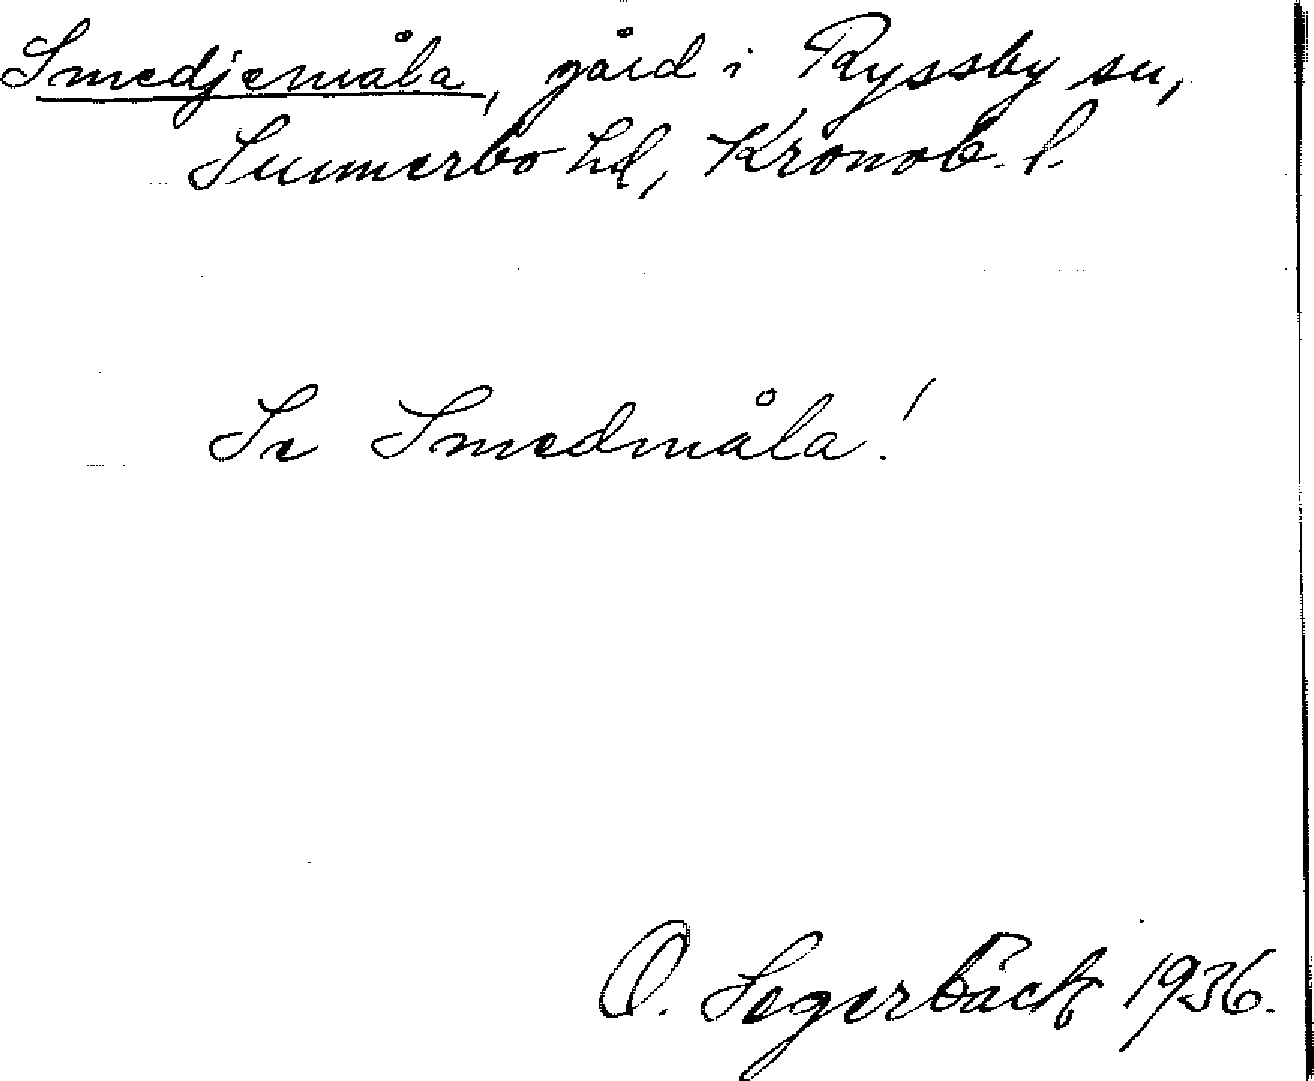 Smedjemåla, gård i Ryssby sn,
Sunnerbo hd, Kronob. l.
Se Smedmåla!
O. Segerbäck 1936.